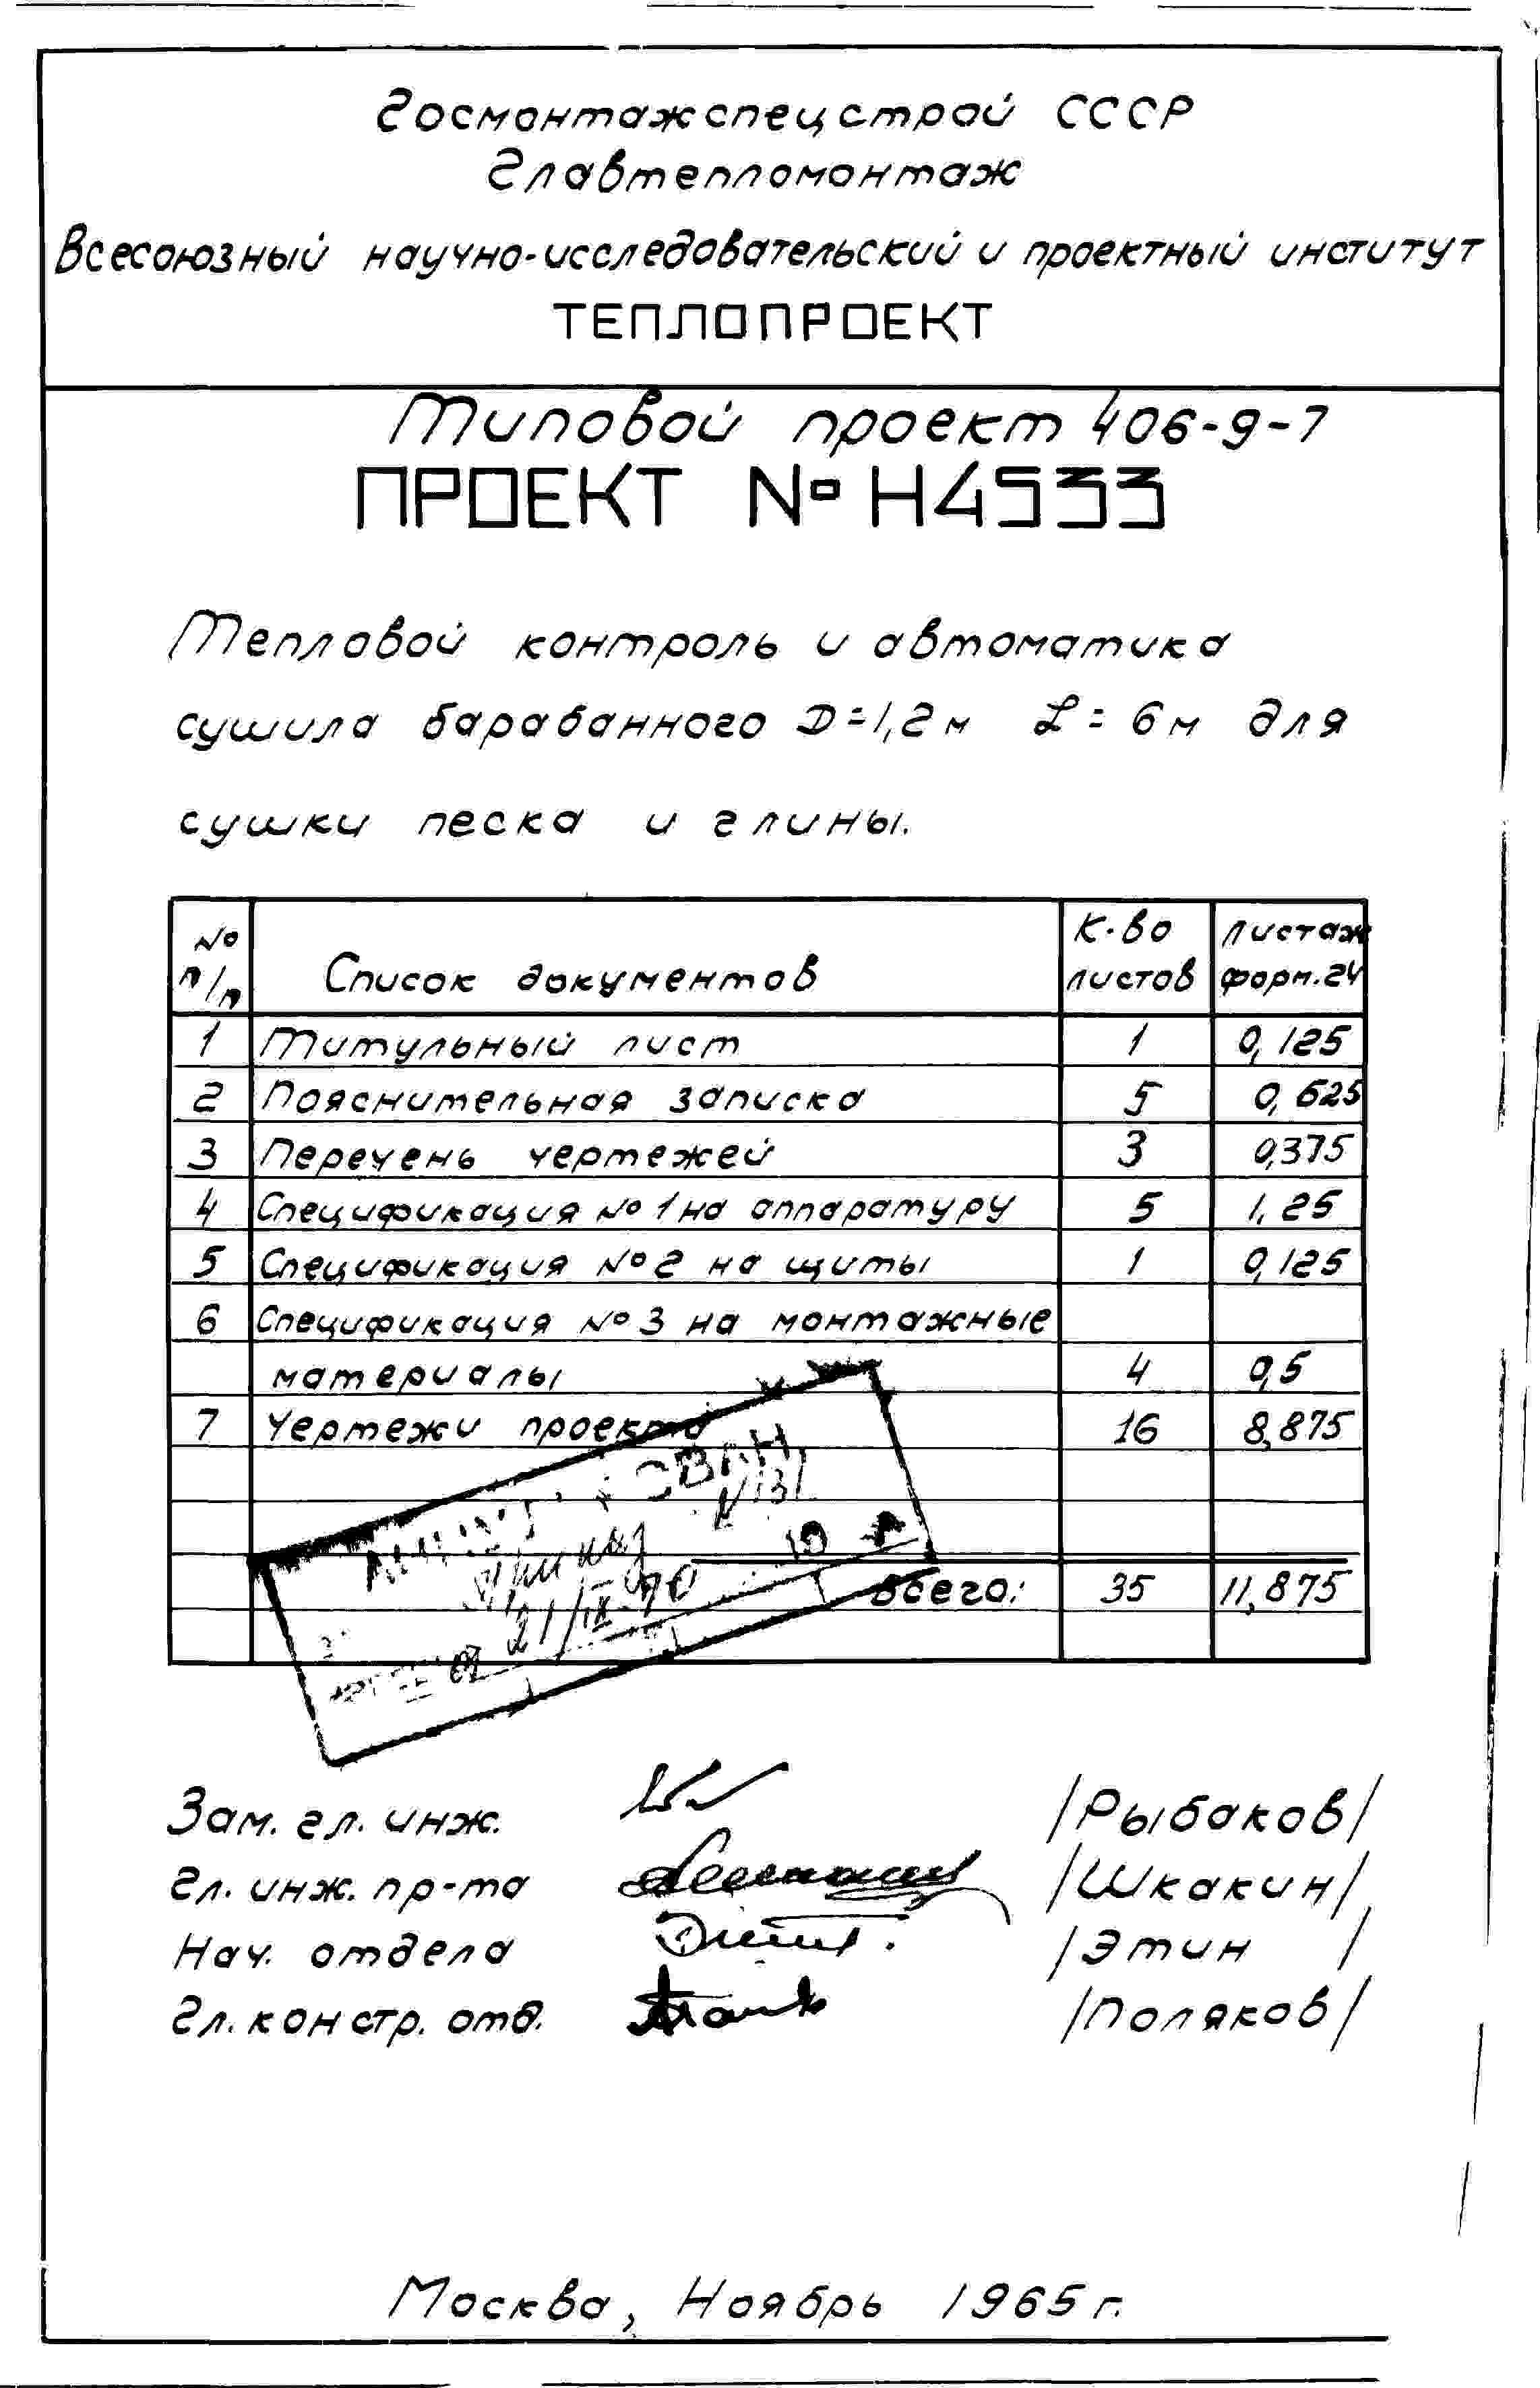 Госмонтажспецстрой СССР
Главтепломонтаж
Всесоюзный научно-исследовательский и проектный институт
ТЕПЛОПРОЕКТ
Типовой проект 406-9-7
ПРОЕКТ № Н4533
Тепловой контроль и автоматика
сушила барабанного D=1,2м L=6м для
сушки песка и глины.
№ п/п Список документов К-во листов листаж форм.24
1 Титульный лист 1 0,125
2 Пояснительная записка 5 0,625
3 Перечень чертежей 3 0,375
4 Спецификация №1 на аппаратуру 5 1,25
5 Спецификация №2 на щиты 1 0,125
6 Спецификация №3 на монтажные
материалы 4 0,5
7 Чертежи проекта 16 8,875
21/IX-70
Всего: 35 11,875
Зам. гл. инж. /Рыбаков/
Гл. инж. пр-та /Шкакин/
Нач. отдела /Этин/
Гл. констр. отд. /Поляков/
Москва, Ноябрь 1965г.